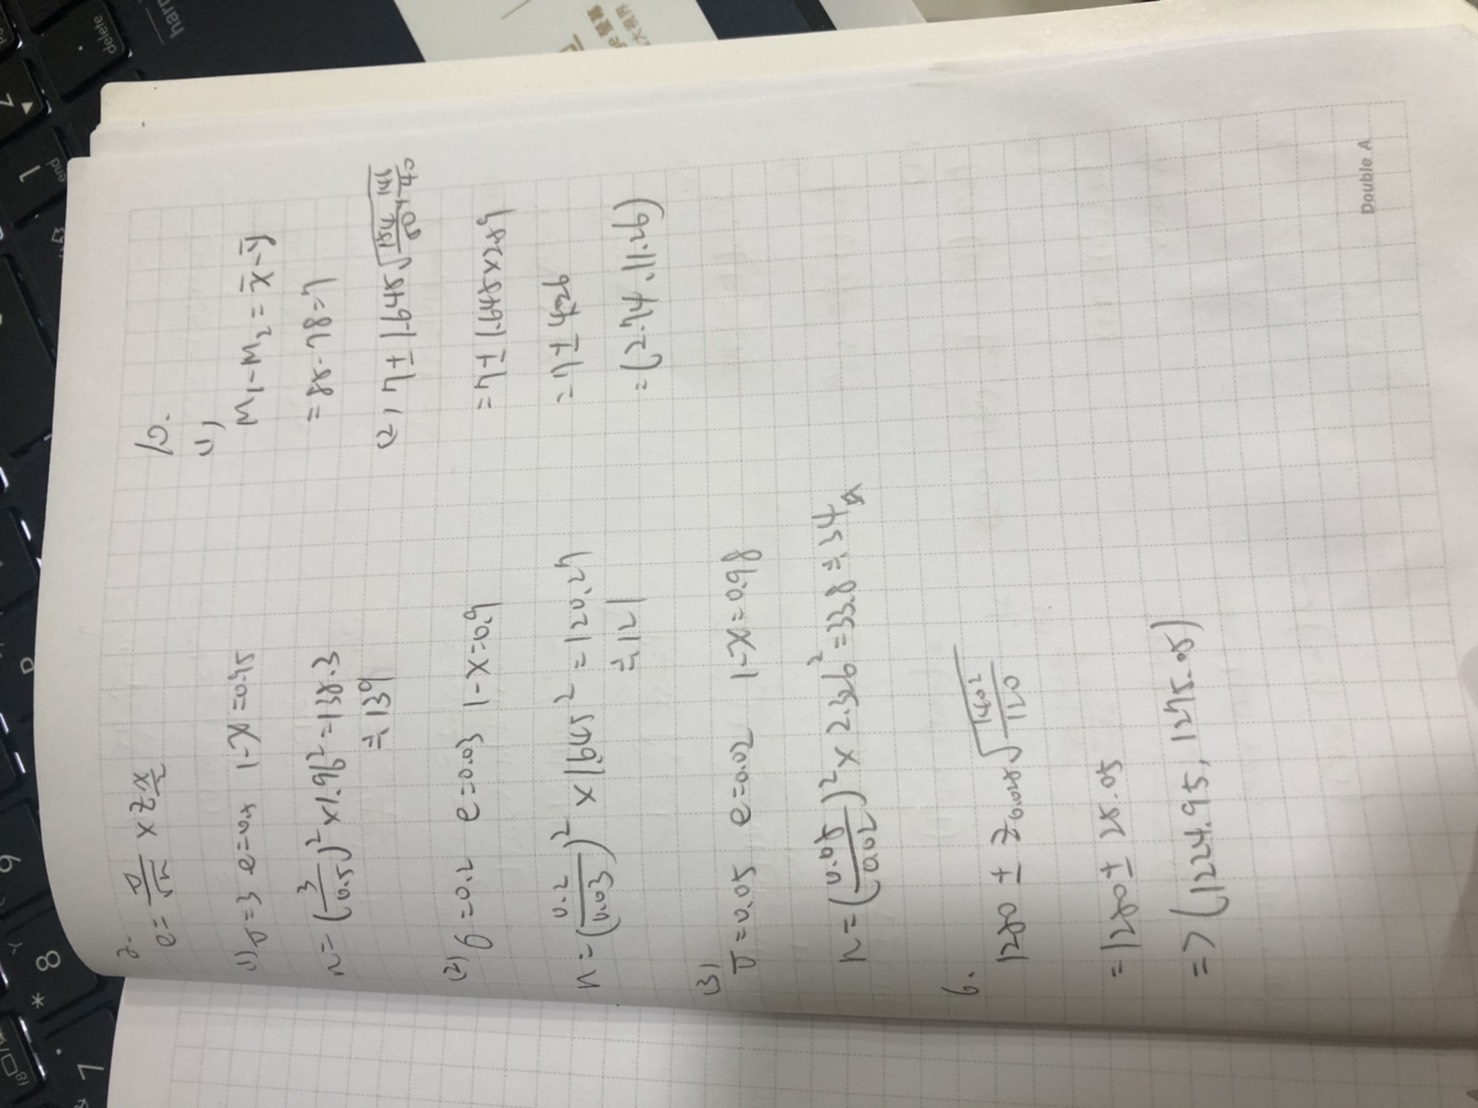 2.
e = σ/√n × z α/2
(1) σ=3 e=0.5 1-α=0.95
n = (3/0.5)² ×1.96² = 138.3
≒ 139
(2) σ=0.2 e=0.03 1-α=0.9
n = (0.2/0.03)² × 1.645² = 120.27
≒ 121
(3)
σ=0.05 e=0.02 1-α=0.98
n = (0.05/0.02)² × 2.326² = 33.8 ≒ 34
6.
1250 ± z0.025 √140²/120
= 1250 ± 25.05
=> (1224.95, 1275.05)
10.
(1)
M1-M2 = x̄-ȳ
= 85-78=7
(2) 7 ± 1.645
= 7 ± 1.645×2.59
= 7 ± 4.26
= (2.74, 11.26)
Double A
delete
end
harp
7
8
9
1
*